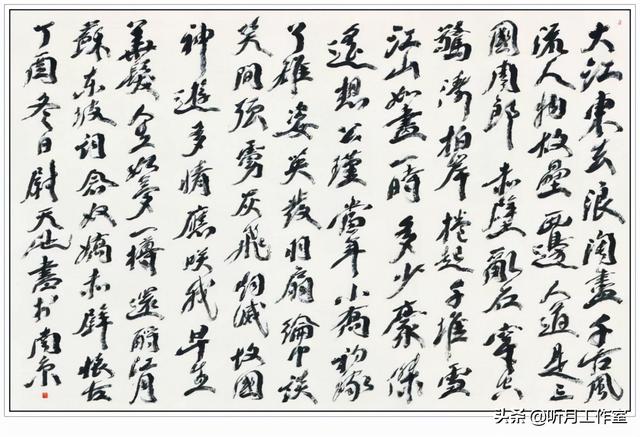 大江東去浪淘盡千古風
流人物故壘西邊人道是三
國周郎赤壁亂石穿空
驚濤拍岸捲起千堆雪
江山如畫一時多少豪傑
遙想公瑾當年小喬初嫁
了雄姿英發羽扇綸巾談
笑間強虜灰飛烟滅故國
神遊多情應咲我早生
華髮人生如夢一樽還酹江月
蘇東坡詞念奴嬌赤壁懷古
丁酉冬日尉天池書於南京
头条 @听月工作室